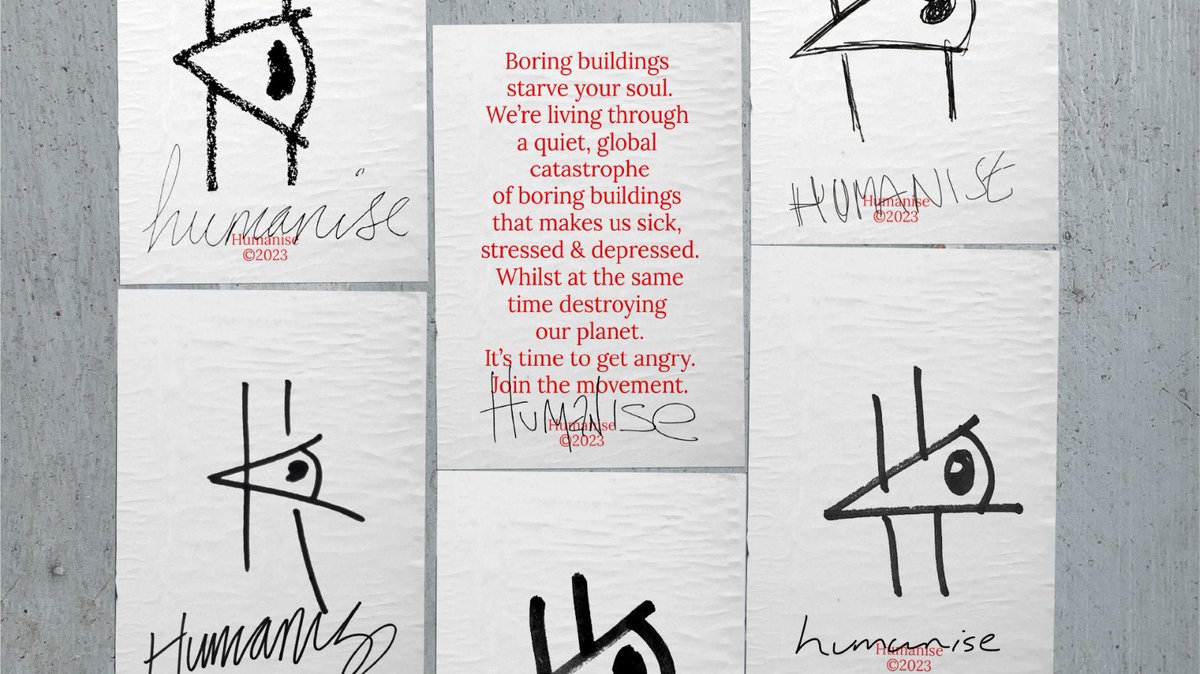 humanise
Humanise
©2023
Boring buildings
starve your soul.
We’re living through
a quiet, global
catastrophe
of boring buildings
that makes us sick,
stressed & depressed.
Whilst at the same
time destroying
our planet.
It’s time to get angry.
Join the movement.
Humanise
Humanise
©2023
HUMANISE
Humanise
©2023
Humanise
humanise
Humanise
©2023